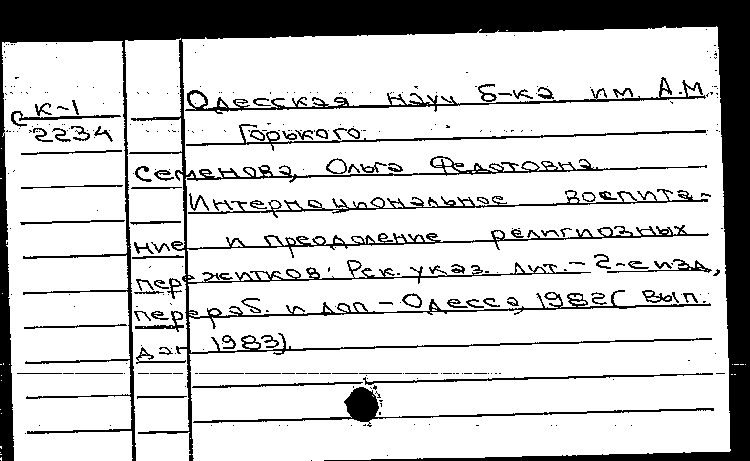 Одесская науч б-ка им. А.М.
ск-1
2234
Горького.
Семенова, Ольга Федотовна
Интернациональное воспита-
ние и преодоление религиозных
пережитков: Рек. указ. лит. - 2-е изд,
перераб. и доп. - Одесса, 1982( вып.
дан 1983).